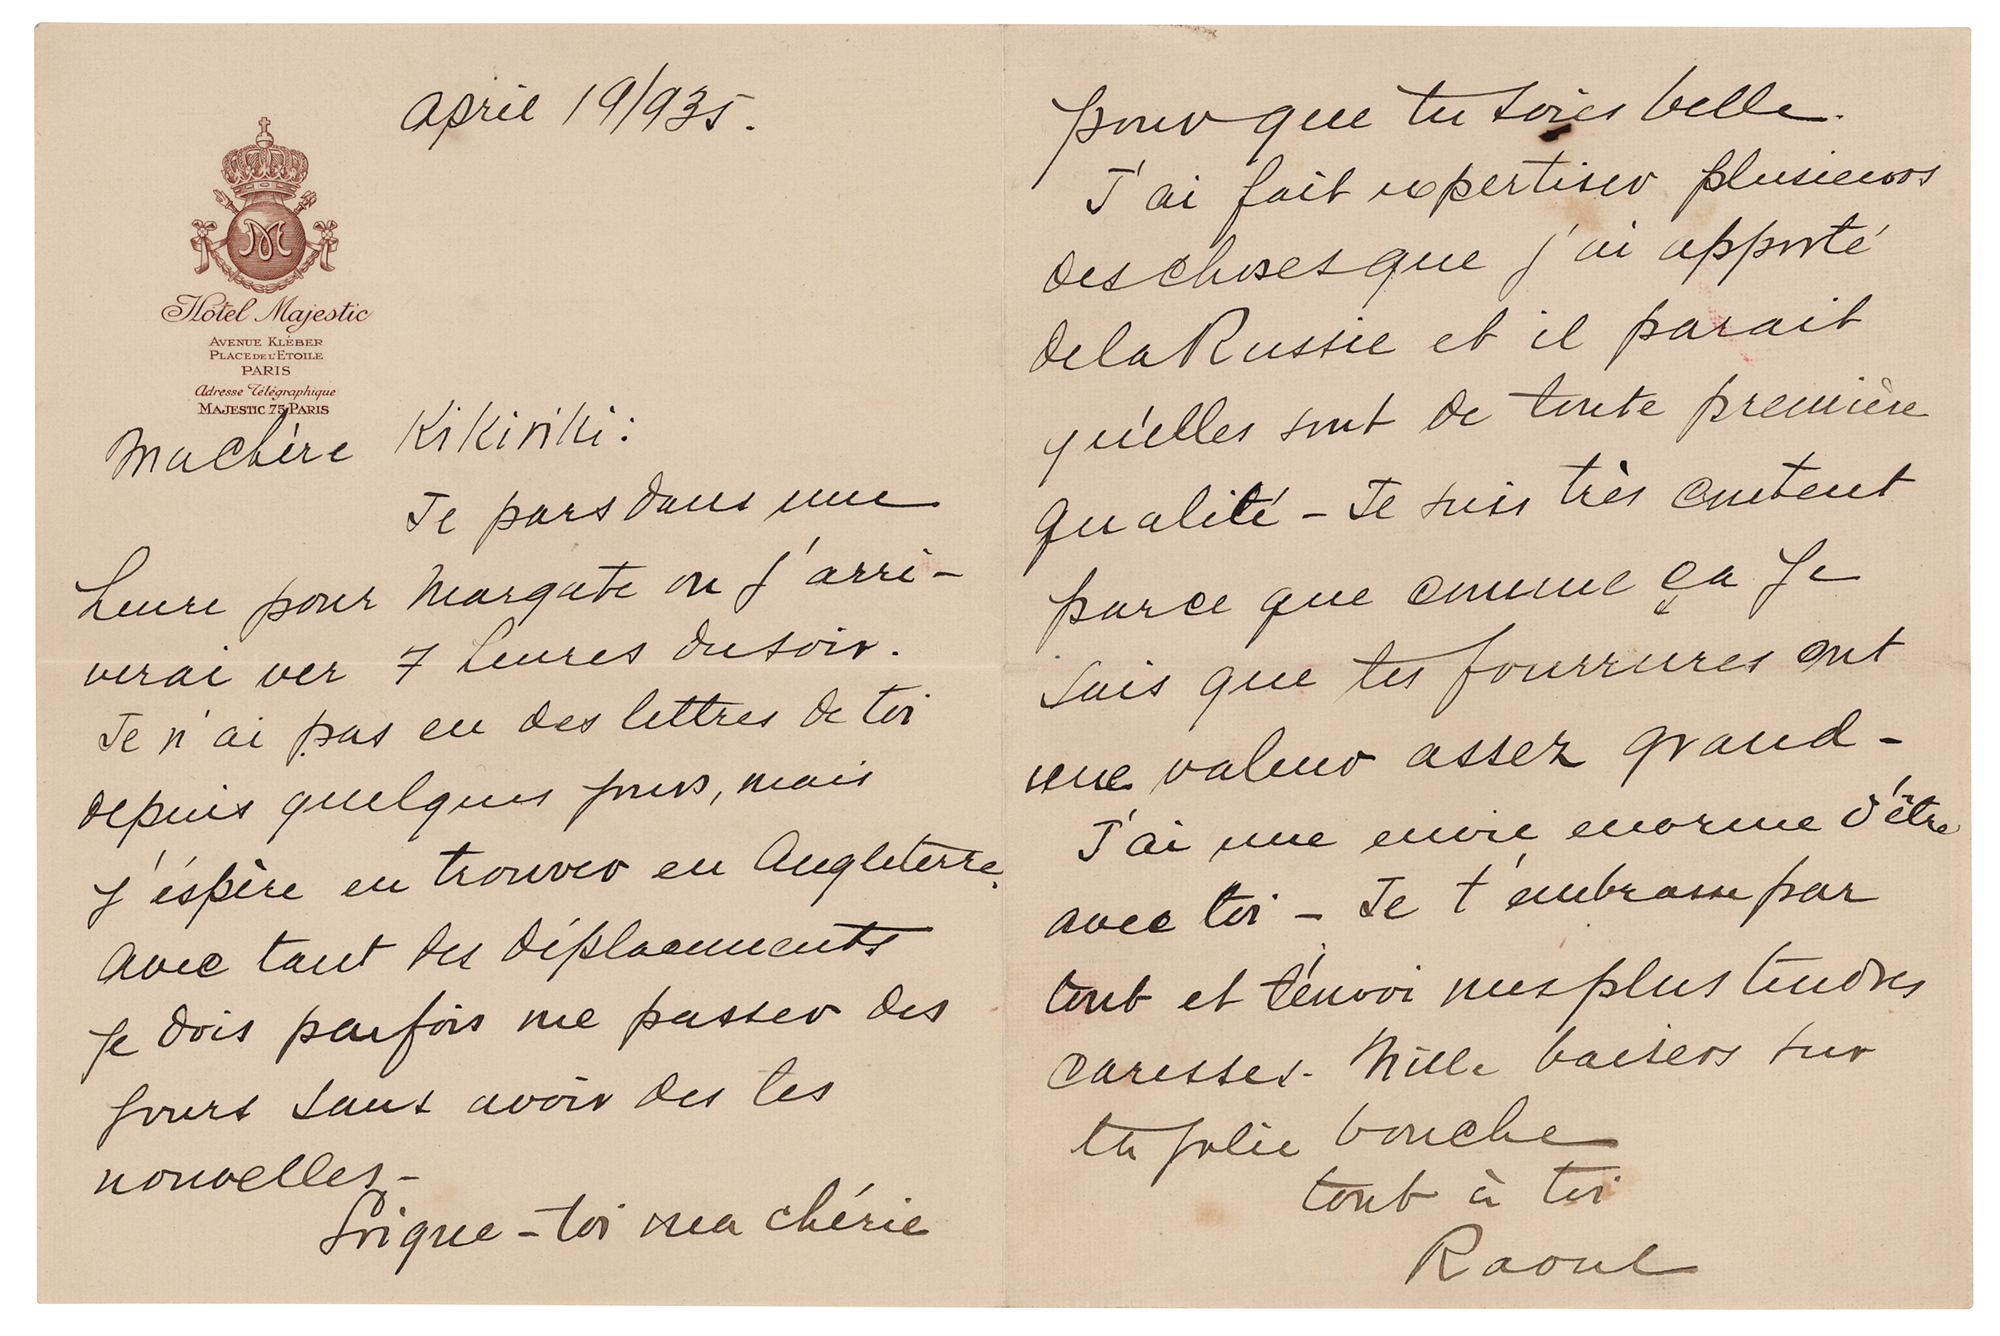 April 19/935.
M
Hôtel Majestic
AVENUE KLÉBER
PLACE DE L'ETOILE
PARIS
Adresse Télégraphique
MAJESTIC 75 PARIS
Ma chère Kikiriki:
Je pars dans une
heure pour Margate ou j'arri-
verai ver 7 heures du soir.
Je n'ai pas eu des lettres de toi
depuis quelques jours, mais
j'éspère en trouver en Angleterre.
Avec tant des déplacements
je dois parfois me passer des
jours sans avoir des tes
nouvelles -
Soigne-toi ma chérie
pour que tu soies belle.
J'ai fait expertiser plusieurs
des choses que j'ai apporté
de la Russie et il parait
qu'elles sont de toute première
qualité - Je suis très content
parce que comme ça je
sais que tes fourrures ont
une valeur assez grand -
J'ai une envie enorme d'être
avec toi - Je t'embrasse par
tout et t'envoi mes plus tendres
caresses. Mille baisers sur
ta jolie bouche
tout à toi
Raoul